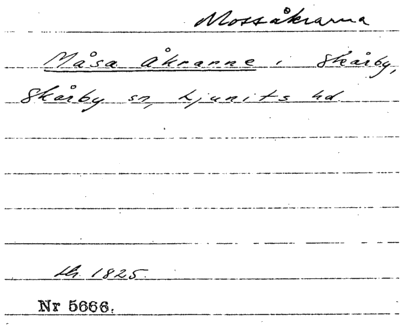 Mossåkrarna
Måsa åkranne i Skårby,
Skårby sn, Ljunits hd
Lh. 1825.
Nr 5666.